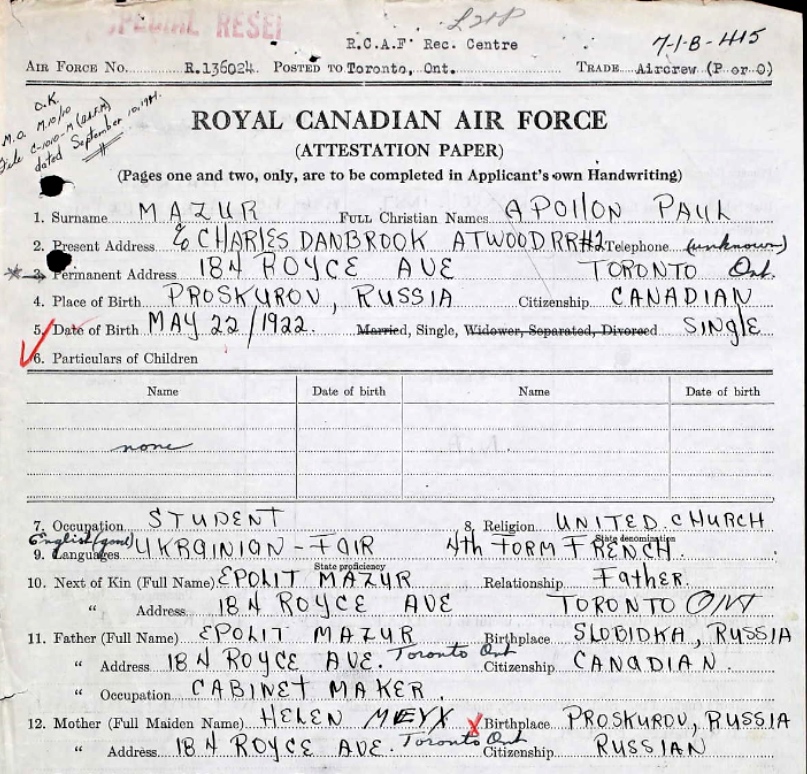 SPECIAL RESE
R.C.A.F. Rec. Centre
7-1-8-415
AIR FORCE No. R.136024. POSTED TO Toronto, Ont. TRADE Aircrew (P or O)
O.K.
M.a. M.10/10
File C-1010-M (D.A.F.M)
dated September 10, 1941.
ROYAL CANADIAN AIR FORCE
(ATTESTATION PAPER)
(Pages one and two, only, are to be completed in Applicant's own Handwriting)
1. Surname MAZUR FULL Christian Names APOLLON PAUL
2. Present Address % CHARLES DANBROOK ATWOOD RR#2 Telephone (unknown)
3. Permanent Address 184 ROYCE AVE TORONTO Ont.
4. Place of Birth PROSKUROV, RUSSIA Citizenship CANADIAN
5. Date of Birth MAY 22/1922. Married, Single, Widower, Separated, Divorced SINGlE
6. Particulars of Children
Name Date of birth Name Date of birth
none
7. Occupation STUDENT 8. Religion UNITED CHURCH
State denomination
English (good)
9. Languages UKRAINIAN - FAIR 4th FORM FRENCH.
State proficiency
10. Next of Kin (Full Name) EPOLIT MAZUR Relationship Father.
" Address 184 ROYCE AVE TORONTO ONT
11. Father (Full Name) EPOLIT MAZUR Birthplace SLOBIDKA, RUSSIA
" Address 184 ROYCE AVE. Toronto Ont Citizenship CANADIAN.
" Occupation CABINET MAKER.
12. Mother (Full Maiden Name) HELEN Birthplace PROSKUROV, RUSSIA
" Address 184 ROYCE AVE. Toronto Ont Citizenship RUSSIAN